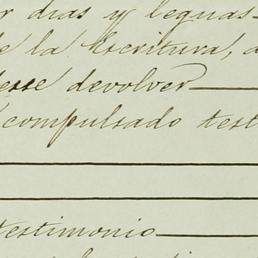 r dias y leguas
de la Escritura, a
devolver
compulsado test
testimonio